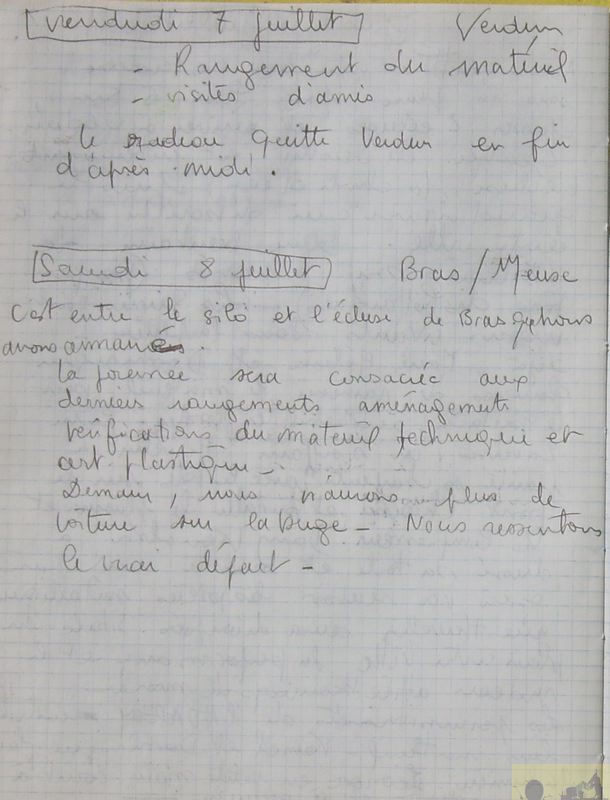 vendredi 7 juillet Verdun
- Rangement du matériel
- visites d'amis
le radeau quitte Verdun en fin
d'après-midi.
Samedi 8 juillet Bras/Meuse
C'est entre le silo et l'écluse de Bras que nous
avons amarré.
La journée sera consacrée aux
derniers rangements aménagements
vérifications du matériel technique et
art plastique -
Demain, nous n'aurons plus de
voiture sur la berge - Nous ressentons
le vrai départ -